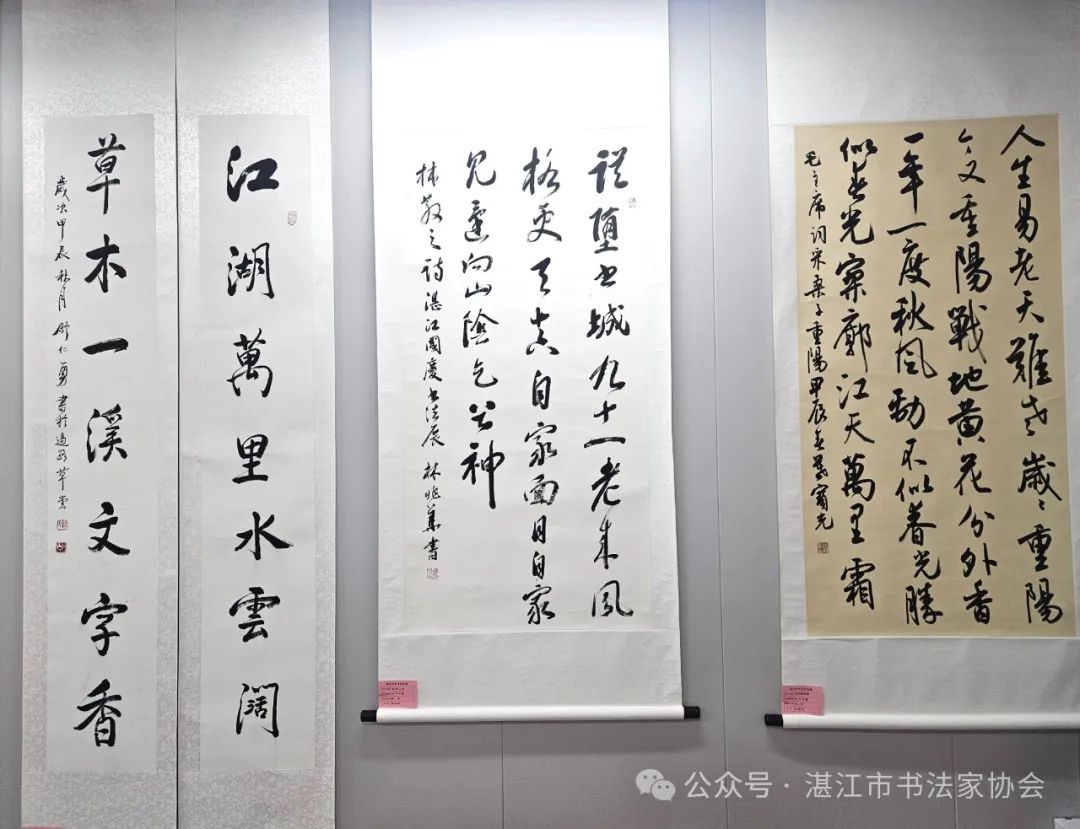 人生易老天難老歲〻重陽
今又重陽戰地黃花分外香
一年一度秋風勁不似春光勝
似春光寥廓江天萬里霜
毛主席詞采桑子重陽甲辰
墮書城九十一老來風
格更天真自家面目自家
見還向山陰乞 神
林散之詩湛江國慶書法展 林兆華書
江湖萬里水雲闊
草木一溪文字香
歲次甲辰秋月 仁勇書於 草堂
公众号·湛江市书法家协会